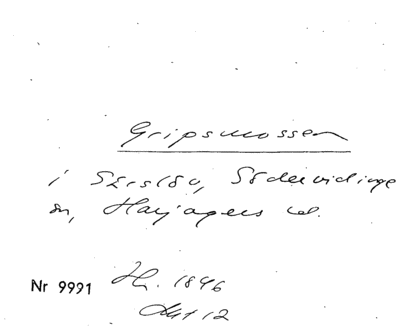 Gripsmossen
i Särslöv, Södervidinge
sn, Harjagers hd.
Nr 9991
1846
Akt 12